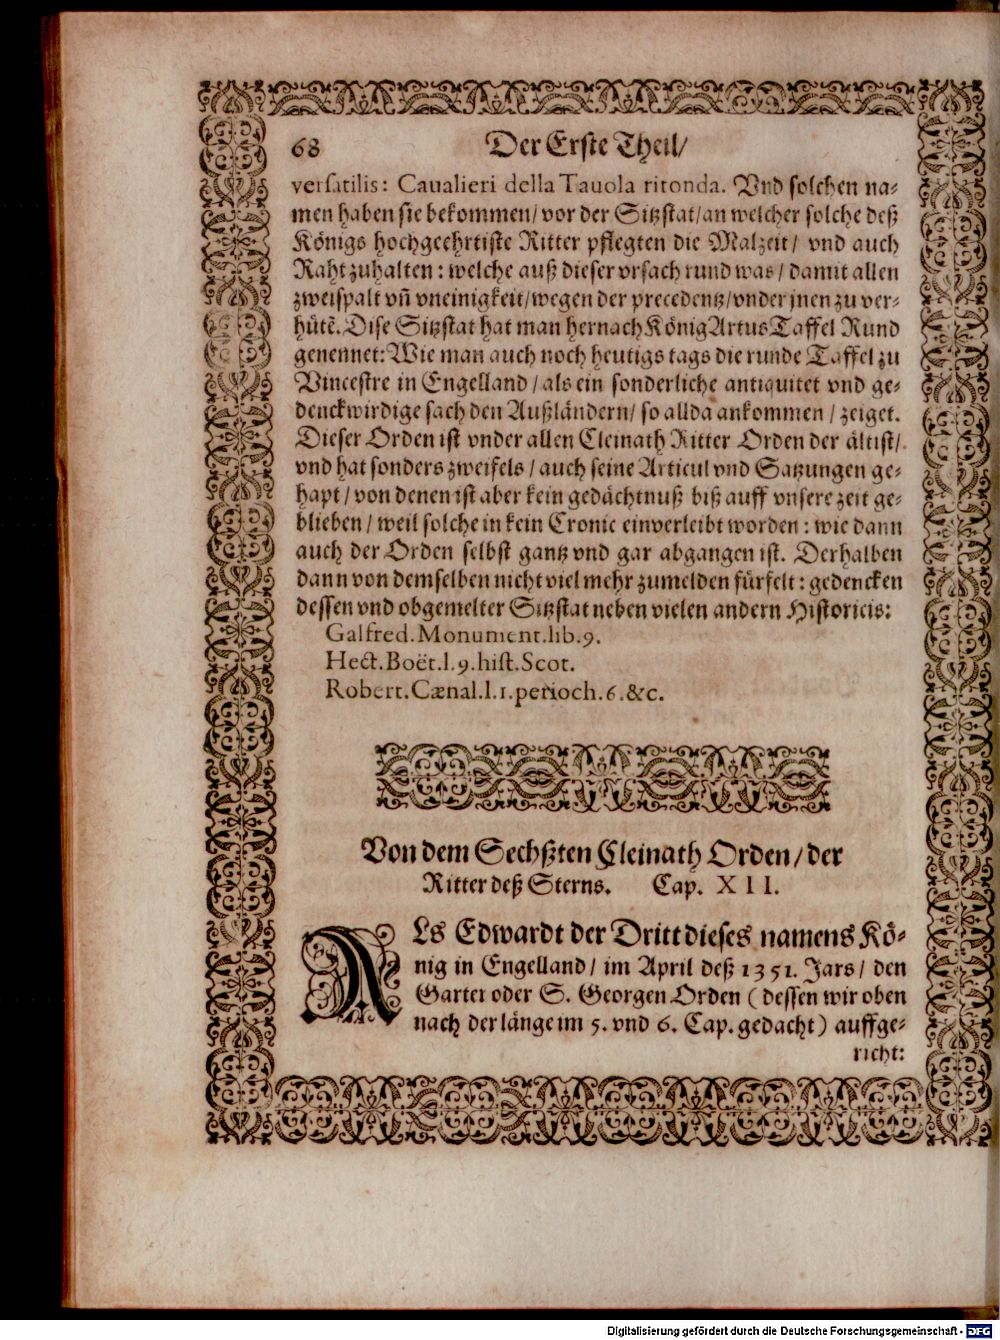 68 Der Erste Theil/
versatilis: Caualieri della Tauola ritonda. Vnd solchen na-
men haben sie bekommen/ vor der Sitzstat/ an welcher solche deß
Königs hochgeehrtiste Ritter pflegten die Malzeit/ vnd auch
Raht zuhalten: welche auß dieser vrsach rund was/ damit allen
zweispalt vñ vneinigkeit/ wegen der precedentz/ vnder jnen zu ver-
hütẽ. Dise Sitzstat hat man hernach König Artus Taffel Rund
genennet: Wie man auch noch heutigs tags die runde Taffel zu
Vincestre in Engelland/ als ein sonderliche antiquitet vnd ge-
denckwirdige sach den Außländern/ so allda ankommen/ zeiget.
Dieser Orden ist vnder allen Cleinath Ritter Orden der ältist/
vnd hat sonders zweifels/ auch seine Articul vnd Satzungen ge-
hapt/ von denen ist aber kein gedächtnuß biß auff vnsere zeit ge-
blieben/ weil solche in kein Cronic einverleibt worden: wie dann
auch der Orden selbst gantz vnd gar abgangen ist. Derhalben
dann von demselben nicht viel mehr zumelden fürfelt: gedencken
dessen vnd obgemelter Sitzstat neben vielen andern Historicis:
Galfred. Monument. lib. 9.
Hect. Boët. l. 9. hist. Scot.
Robert. Cænal. l. 1. perioch. 6. &c.
Von dem Sechßten Cleinath Orden/ der
Ritter deß Sterns. Cap. XII.
ALs Edwardt der Dritt dieses namens Kö-
nig in Engelland/ im April deß 1351. Jars/ den
Garter oder S. Georgen Orden (dessen wir oben
nach der länge im 5. vnd 6. Cap. gedacht) auffge-
richt:
Digitalisierung gefördert durch die Deutsche Forschungsgemeinschaft - DFG